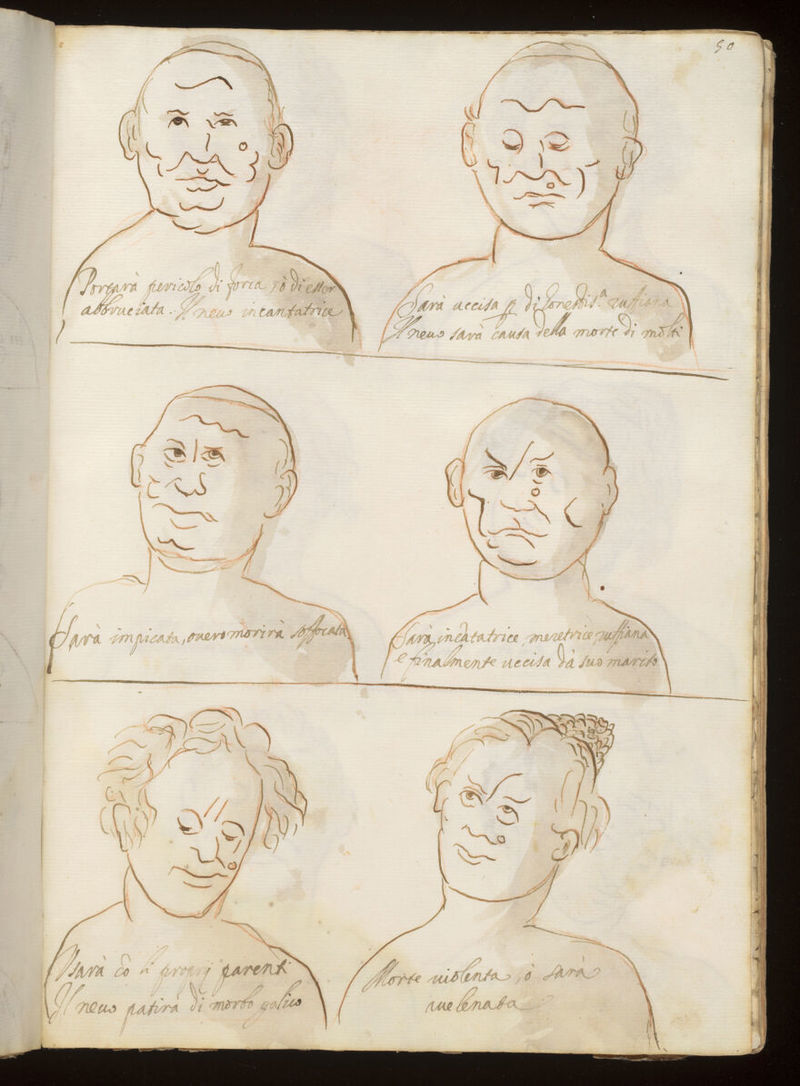 50
Portarà pericolo di forca, ò di esser
abbruciata. Il neuo incantatrice
Sarà uccisa p di Conestisᵃ ruffiana
Il neuo sarà causa della morte di molti
Sarà impicata, ouero morirà soffocata
Sarà incatatrice meretrice ruffiana
e finalmente uccisa dà suo marito
Vsarà cō li proprij parenti
Il neuo patirà di morbo galico
Morte uiolenta, ò sarà
auelenata